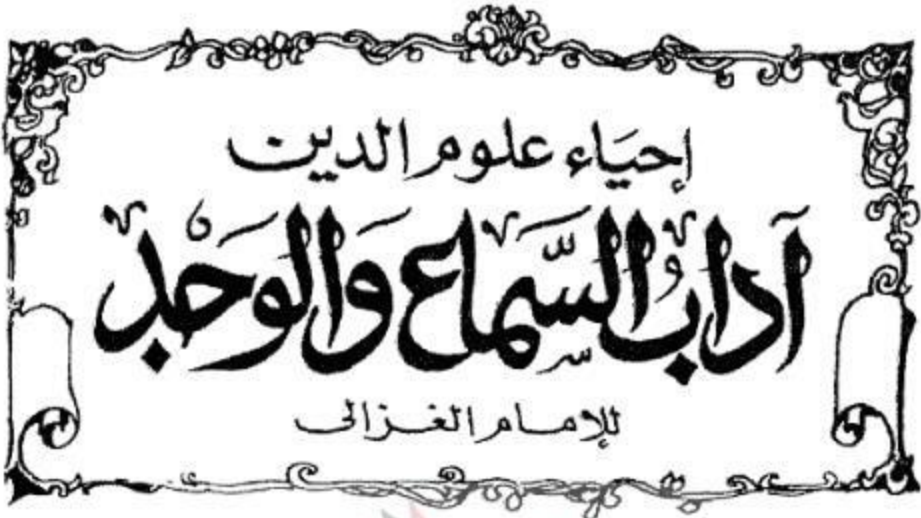 إحيَاء علوم الدين
آدابُ السَّماع وَالوَجْد
للإمام الغزالى